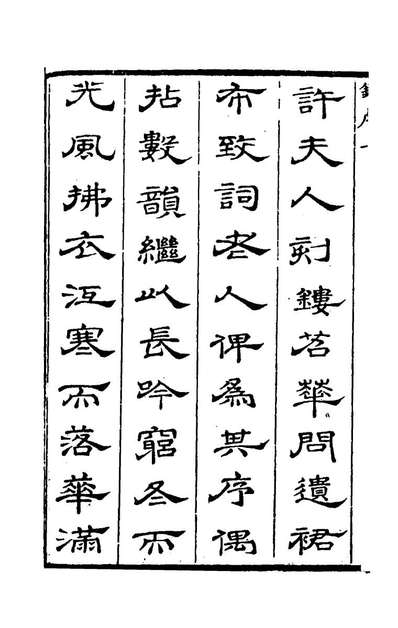 許夫人刻鏤苕華問遺裙
布致詞老人俾為其序偶
拈數韻繼以長吟窮冬而
光風拂衣沍寒而落華滿